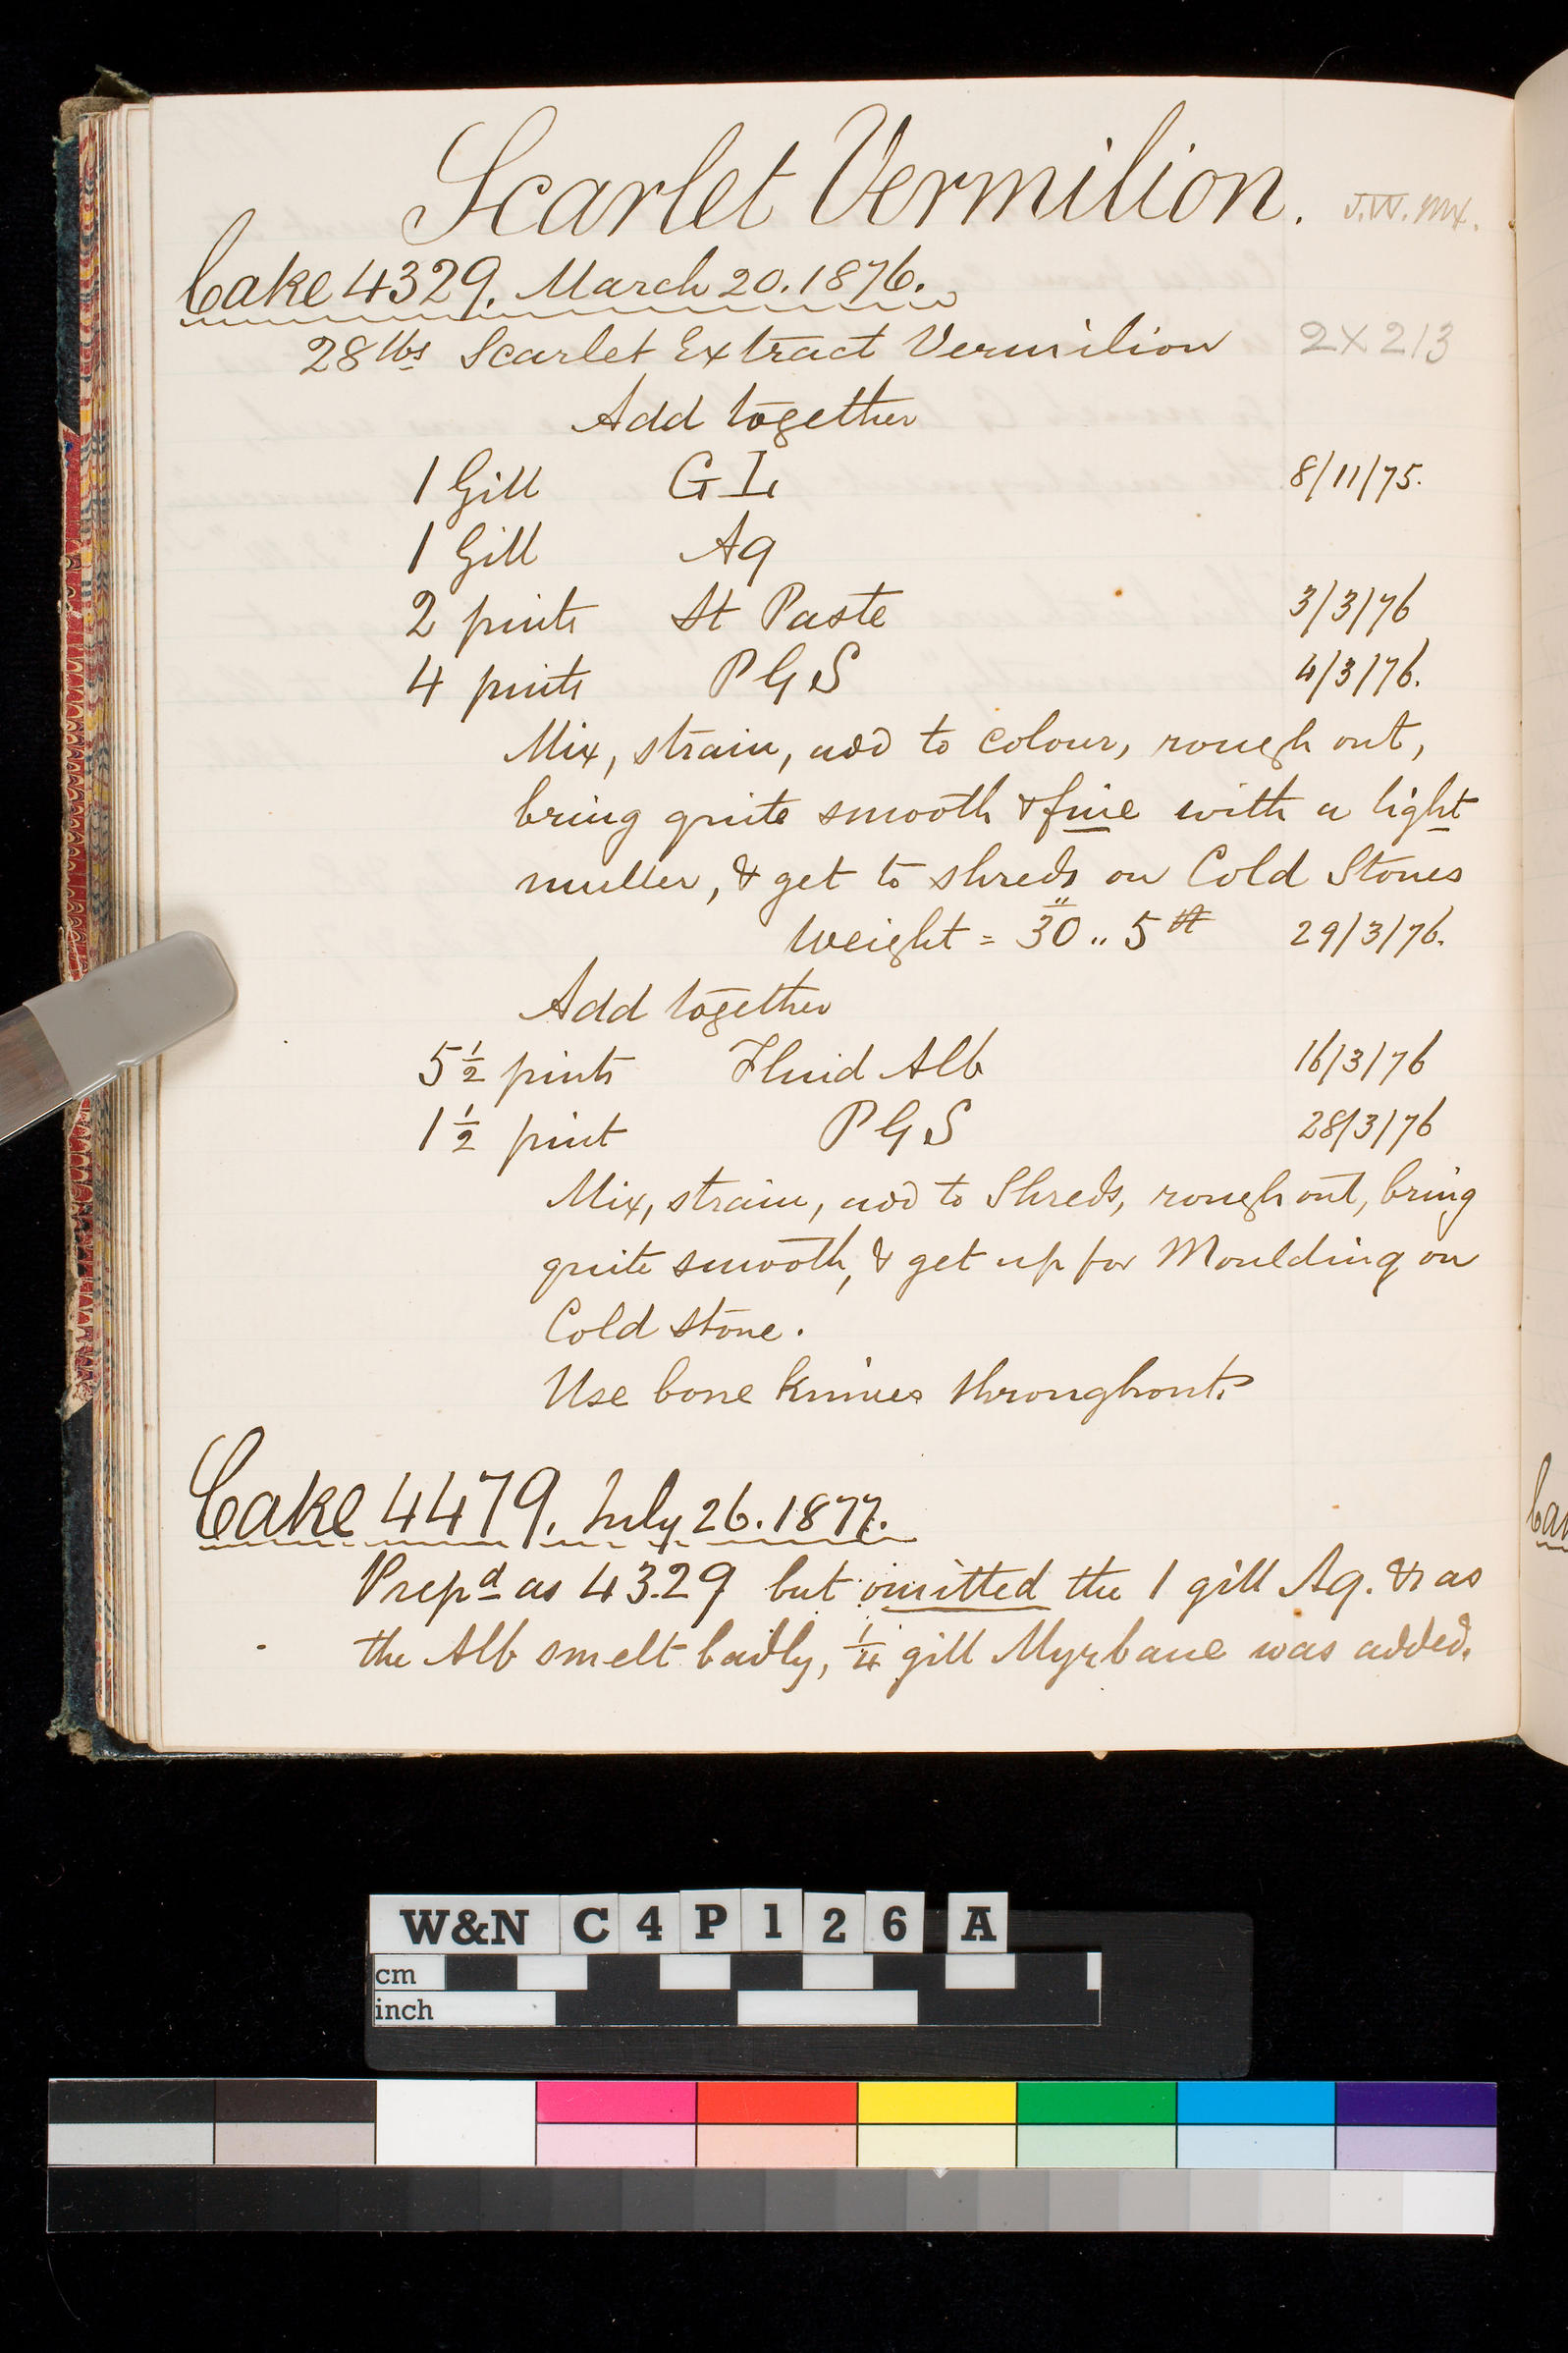 Scarlet Vermilion. J.W. Mx.
Cake 4329. March 20. 1876.
28 lbs Scarlet Extract Vermilion 2X213
Add together
1 Gill G I. 8/11/75.
1 Gill Aq
2 pints St Paste 3/3/76
4 pints P G S 4/3/76.
Mix, strain, add to colour, rough out,
bring quite smooth & fine with a light
muller, & get to shreds on Cold Stones
Weight = 30 .. 5 29/3/76.
Add together
5 1/2 pints Fluid Alb 16/3/76
1 1/2 pint P G S 28/3/76
Mix, strain, add to Shreds, rough out, bring
quite smooth, & get up for Moulding on
Cold stone.
Use bone knives throughout.
Cake 4479. July 26. 1877.
Prepd as 4329 but omitted the 1 gill Aq. & as
the Alb smelt badly, 1/4 gill Myrbane was added.
W&N C4P126 A
cm
inch